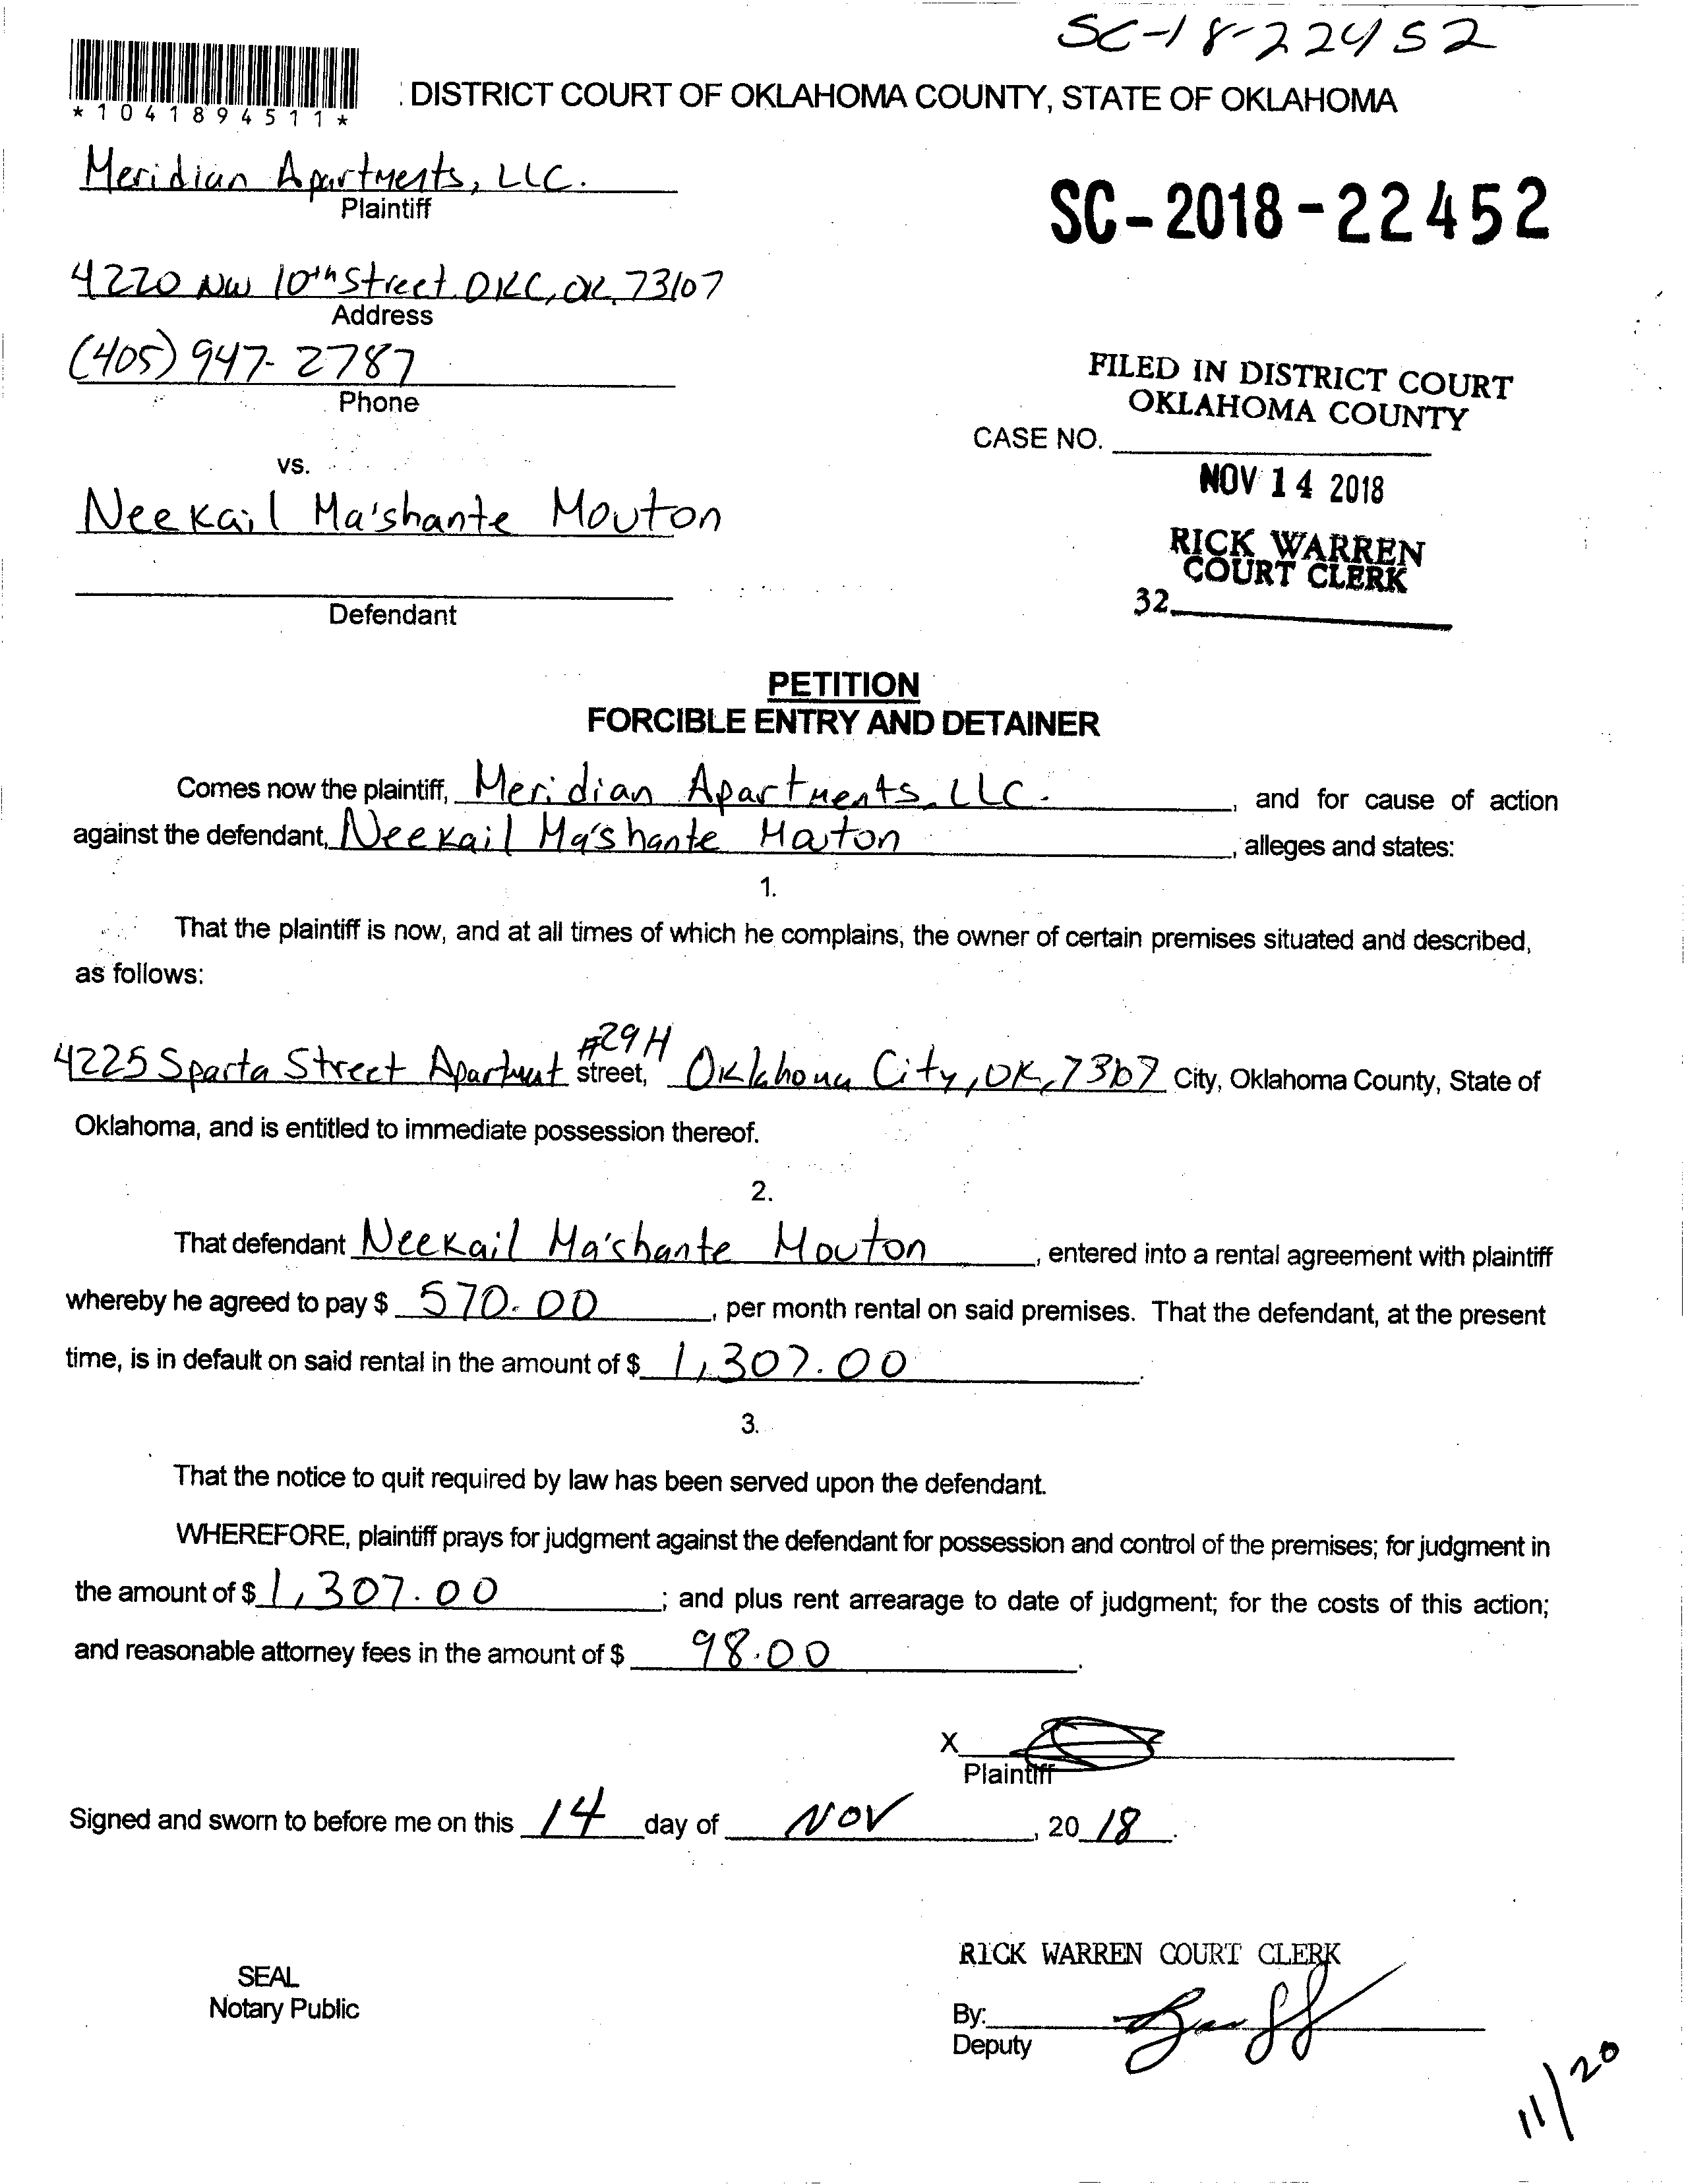 SC-18-22452
*1041894511*
DISTRICT COURT OF OKLAHOMA COUNTY, STATE OF OKLAHOMA
Meridian Apartments, LLC.
Plaintiff
SC-2018-22452
4220 NW 10th Street OKC, OK, 73107
Address
(405) 947-2787
Phone
FILED IN DISTRICT COURT
OKLAHOMA COUNTY
CASE NO.
vs.
NOV 14 2018
Neekail Ma'shante Mouton
RICK WARREN
COURT CLERK
32
Defendant
PETITION
FORCIBLE ENTRY AND DETAINER
Comes now the plaintiff, Meridian Apartments, LLC. , and for cause of action
against the defendant, Neekail Ma'shante Mouton , alleges and states:
1.
That the plaintiff is now, and at all times of which he complains, the owner of certain premises situated and described,
as follows:
4225 Sparta Street Apartment #29H street, Oklahoma City, OK, 73107 City, Oklahoma County, State of
Oklahoma, and is entitled to immediate possession thereof.
2.
That defendant Neekail Ma'shante Mouton , entered into a rental agreement with plaintiff
whereby he agreed to pay $ 570.00 , per month rental on said premises. That the defendant, at the present
time, is in default on said rental in the amount of $ 1,307.00 .
3.
That the notice to quit required by law has been served upon the defendant.
WHEREFORE, plaintiff prays for judgment against the defendant for possession and control of the premises; for judgment in
the amount of $ 1,307.00 ; and plus rent arrearage to date of judgment; for the costs of this action;
and reasonable attorney fees in the amount of $ 98.00 .
X
Plaintiff
Signed and sworn to before me on this 14 day of NOV , 20 18 .
RICK WARREN COURT CLERK
SEAL
Notary Public
By:
Deputy
11/20